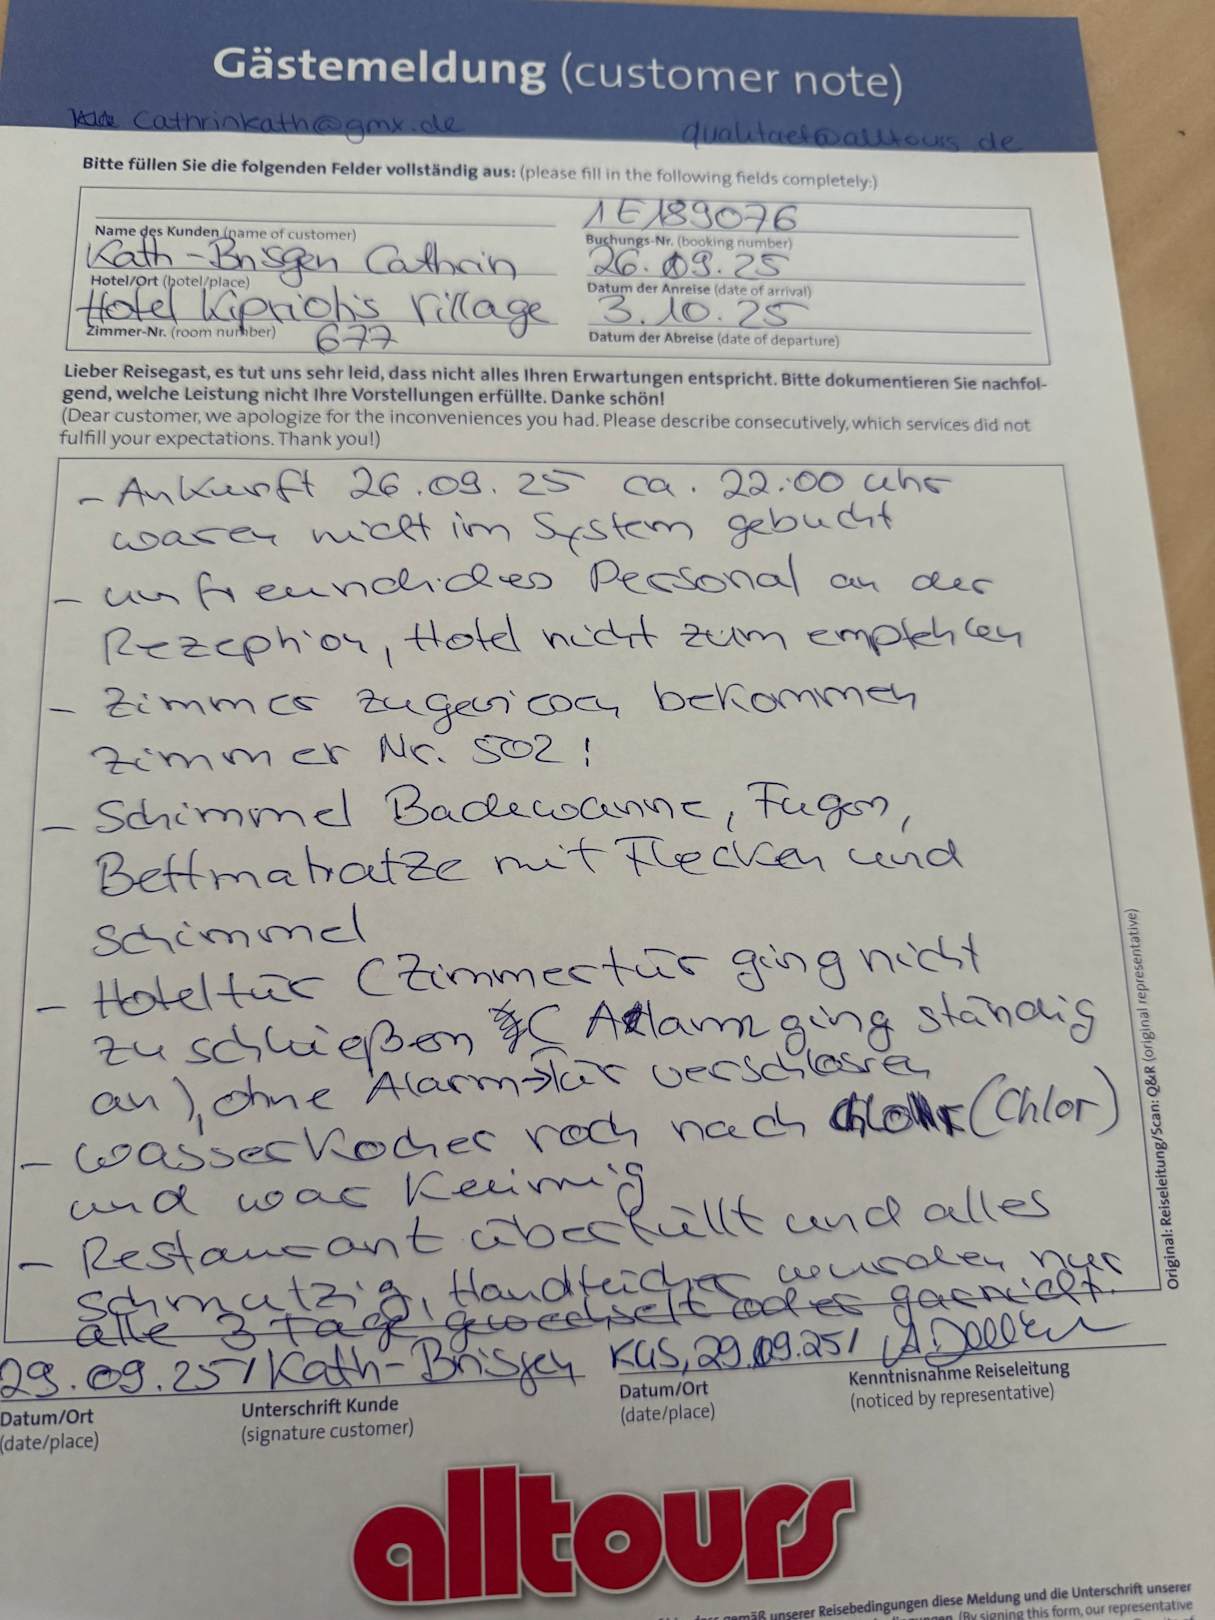 Gästemeldung (customer note)
Cathrinkath@gmx.de qualitaet@alltours.de
Bitte füllen Sie die folgenden Felder vollständig aus: (please fill in the following fields completely:)
1E189076
Name des Kunden (name of customer) Buchungs-Nr. (booking number)
Kath-Brisgen Cathrin 26.09.25
Hotel/Ort (hotel/place) Datum der Anreise (date of arrival)
Hotel Kipriotis Village 3.10.25
Zimmer-Nr. (room number) 677 Datum der Abreise (date of departure)
Lieber Reisegast, es tut uns sehr leid, dass nicht alles Ihren Erwartungen entspricht. Bitte dokumentieren Sie nachfol-
gend, welche Leistung nicht Ihre Vorstellungen erfüllte. Danke schön!
(Dear customer, we apologize for the inconveniences you had. Please describe consecutively, which services did not
fulfill your expectations. Thank you!)
- Ankunft 26.09.25 ca. 22:00 Uhr
waren nicht im System gebucht
- unfreundliches Personal an der
Rezeption, Hotel nicht zum empfehlen
- Zimmer zugewiesen bekommen
Zimmer Nr. 502!
- Schimmel Badewanne, Fugen,
Bettmatratze mit Flecken und
Schimmel
- Hoteltür (Zimmertür ging nicht
zu schließen (Alarm ging ständig
an), ohne Alarm→Tür verschlossen
- Wasserkocher roch nach (Chlor)
und war Keimig
- Restaurant überfüllt und alles
schmutzig, Handtücher wurden nur
alle 3 Tage gewechselt oder garnicht.
29.09.25/ Kath-Brisgen KGS, 29.09.25/
Datum/Ort Unterschrift Kunde Datum/Ort Kenntnisnahme Reiseleitung
(date/place) (signature customer) (date/place) (noticed by representative)
Original: Reiseleitung/Scan: Q&R (original representative)
alltours
gemäß unserer Reisebedingungen diese Meldung und die Unterschrift unserer
(By signing this form, our representative